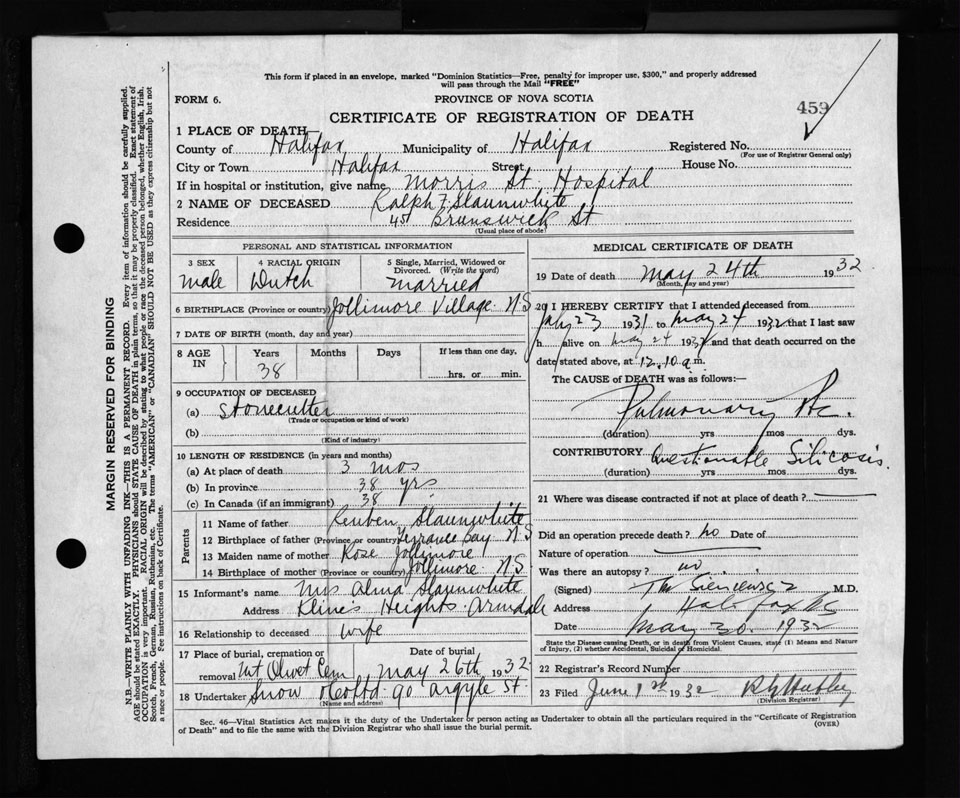 This form if placed in an envelope, marked "Dominion Statistics—Free, penalty for improper use, $300," and properly addressed
will pass through the Mail "FREE"
FORM 6.
PROVINCE OF NOVA SCOTIA
459
CERTIFICATE OF REGISTRATION OF DEATH
1 PLACE OF DEATH
County of Halifax Municipality of Halifax Registered No.
(For use of Registrar General only)
City or Town Halifax Street House No.
If in hospital or institution, give name Morris St. Hospital
2 NAME OF DECEASED Ralph F. Slaunwhite
Residence 451 Brunswick St
(Usual place of abode)
PERSONAL AND STATISTICAL INFORMATION
3 SEX 4 RACIAL ORIGIN 5 Single, Married, Widowed or Divorced. (Write the word)
male Dutch married
6 BIRTHPLACE (Province or country) Jollimore Village N.S
7 DATE OF BIRTH (month, day and year)
8 AGE IN Years Months Days If less than one day,
38 hrs. or min.
9 OCCUPATION OF DECEASED
(a) Stonecutter
(Trade or occupation or kind of work)
(b)
(Kind of industry)
10 LENGTH OF RESIDENCE (in years and months)
(a) At place of death 3 mos
(b) In province 38 yrs
(c) In Canada (if an immigrant) 38
Parents
11 Name of father Reuben Slaunwhite
12 Birthplace of father (Province or country) Terrance Bay N.S
13 Maiden name of mother Rose Jollimore
14 Birthplace of mother (Province or country) Jollimore N.S.
15 Informant's name Mrs Alma Slaunwhite
Address Klines Heights Armdale
16 Relationship to deceased wife
17 Place of burial, cremation or removal Date of burial
Mt Olivet Cem May 26th 1932
18 Undertaker Snow & Co Ltd. 90 Argyle St.
(Name and address)
MEDICAL CERTIFICATE OF DEATH
19 Date of death May 24th 1932
(Month, day and year)
20 I HEREBY CERTIFY that I attended deceased from
July 23 1931 to May 24 1932 that I last saw
h alive on May 24 1932 and that death occurred on the
date stated above, at 12.10 a.m.
The CAUSE of DEATH was as follows:—
Pulmonary
(duration) yrs mos dys.
CONTRIBUTORY Questionable Silicosis.
(duration) yrs mos dys.
21 Where was disease contracted if not at place of death?
Did an operation precede death? no Date of
Nature of operation
Was there an autopsy? no
(Signed) M.D.
Address Halifax NS
Date May 30. 1932
State the Disease causing Death, or in death from Violent Causes, state (1) Means and Nature
of Injury, (2) whether Accidental, Suicidal or Homicidal.
22 Registrar's Record Number
23 Filed June 1st 1932
(Division Registrar)
Sec. 46—Vital Statistics Act makes it the duty of the Undertaker or person acting as Undertaker to obtain all the particulars required in the "Certificate of Registration
of Death" and to file the same with the Division Registrar who shall issue the burial permit.
(OVER)
MARGIN RESERVED FOR BINDING
N.B.—WRITE PLAINLY WITH UNFADING INK—THIS IS A PERMANENT RECORD. Every item of information should be carefully supplied.
AGE should be stated EXACTLY. PHYSICIANS should STATE CAUSE OF DEATH in plain terms, so that it may be properly classified. Exact statement of
OCCUPATION is very important. RACIAL ORIGIN will be described by stating to what people or race the deceased person belonged, whether English, Irish,
Scotch, French, German, Russian, Ruthenian, etc. The terms "AMERICAN" or "CANADIAN" SHOULD NOT BE USED as they express citizenship but not
a race or people. Fee instructions on back of Certificate.